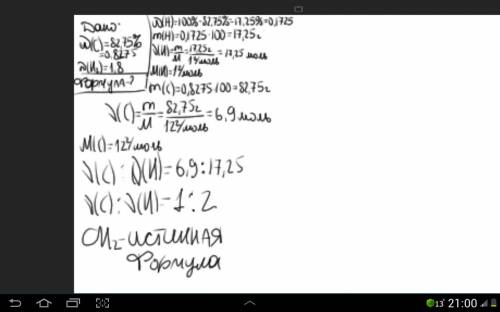 Дано:
ω(C)=82,75%
=0,8275
D(H₂)=1,8
Формула-?
ω(H)=100%-82,75%=17,25%=0,1725
m(H)=0,1725·100=17,25г
ν(H)=m/M=17,25г/1г/моль=17,25 моль
M(H)=1г/моль
m(C)=0,8275·100=82,75г
ν(C)=m/M=82,75г/12г/моль=6,9 моль
M(C)=12г/моль
ν(C):ν(H)=6,9:17,25
ν(C):ν(H)=1:2
CH₂-истинная
формула
13°
21:00